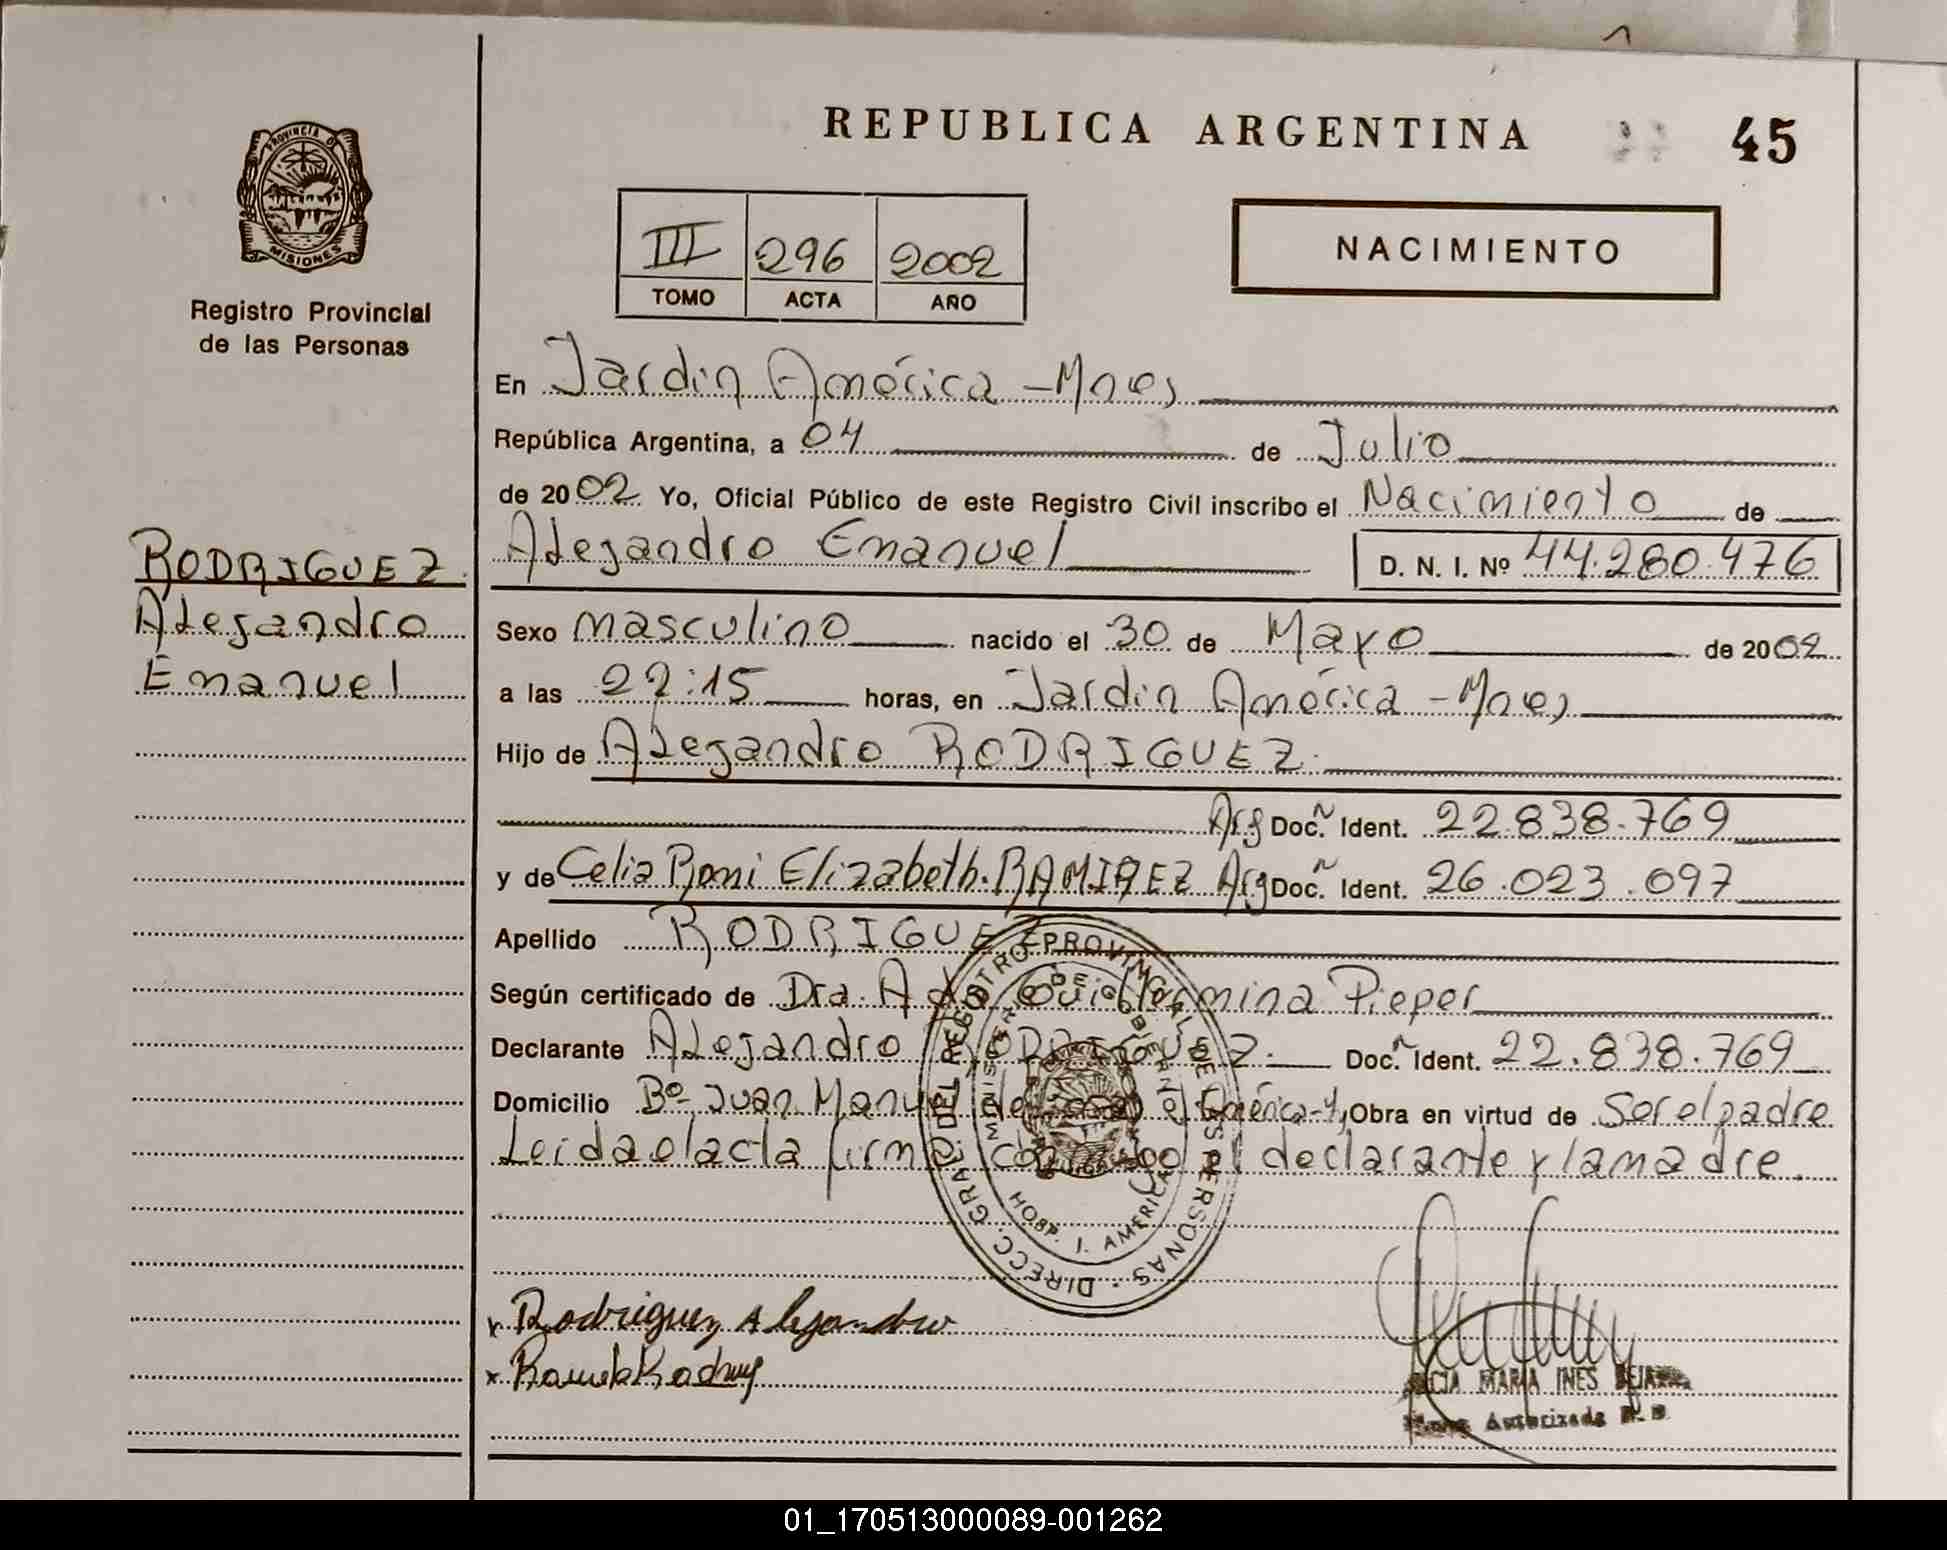 REPUBLICA ARGENTINA 45
PROVINCIA DE
MISIONES
Registro Provincial
de las Personas
III 296 2002
TOMO ACTA AÑO
NACIMIENTO
En Jardin América - Mnes
República Argentina, a 04 de Julio
de 2002 Yo, Oficial Público de este Registro Civil inscribo el Nacimiento de
Alejandro Emanuel D. N. I. Nº 44.280.476
RODRIGUEZ
Alejandro
Emanuel
Sexo masculino nacido el 30 de Mayo de 2002
a las 22:15 horas, en Jardin América - Mnes
Hijo de Alejandro RODRIGUEZ.
Arg Doc. Ident. 22.838.769
y de Celia Roni Elizabeth. RAMIREZ Arg Doc. Ident. 26.023.097
Apellido RODRIGUEZ
Según certificado de Dra. Guillermina Pieper
Declarante Alejandro RODRIGUEZ. Doc. Ident. 22.838.769
Domicilio Bº Juan Manuel de América Obra en virtud de Ser el padre
Leida el acta firma conmigo el declarante y la madre.
DIRECC. GRAL. DEL REGISTRO PROVINCIAL DE LAS PERSONAS
MINISTERIO DE GOBIERNO
HOSP. J. AMERICA
x Rodriguez Alejandro
MARIA INES
Autorizada
01_170513000089-001262